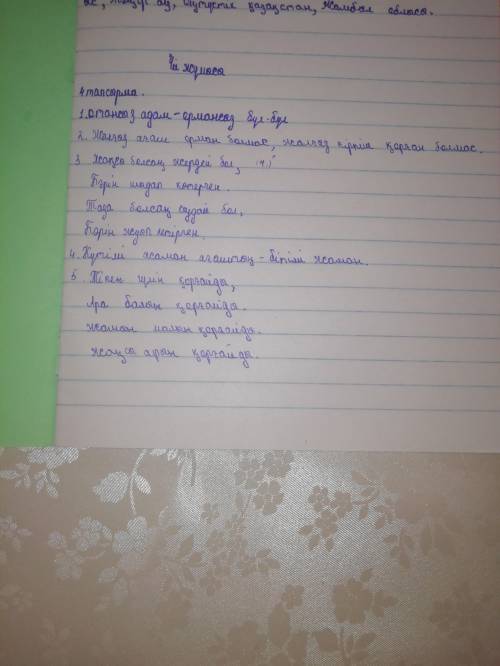 ас, оңтүстік қазақстан, Жамбыл облысы.
Үй жұмысы
4 тапсырма.
1. Отансыз адам - ормансыз бұл-бұл
2. Жалғыз ағаш орман болмас, жалғыз кірпіш қорған болмас.
3. жақсы болсаң жердей бол,
Бәрін шыдап көтерген.
Таза болсаң судай бол,
Бәрін жуып кетірген.
4. Күтімі жаман ағаштың - бітімі жаман.
5. Тікен гүлін қорғайды,
Ара балын қорғайды.
жаман малын қорғайды.
жақсы арын қорғайды.